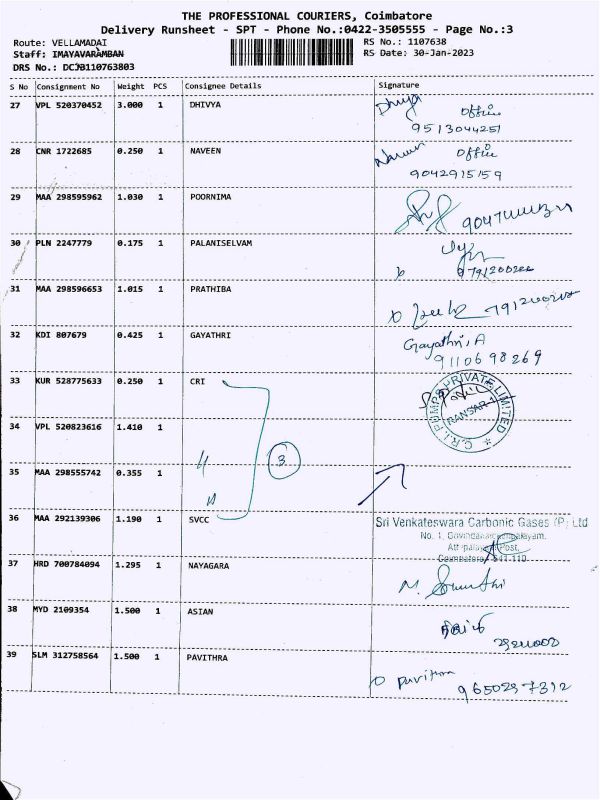 THE PROFESSIONAL COURIERS, Coimbatore
Delivery Runsheet - SPT - Phone No.:0422-3505555 - Page No.:3
Route: VELLAMADAI RS No.: 1107638
Staff: IMAYAVARAMBAN RS Date: 30-Jan-2023
DRS No.: DCJB110763803
S No Consignment No Weight PCS Consignee Details Signature
27 VPL 520370452 3.000 1 DHIVYA Dhivya office
9513044251
28 CNR 1722685 0.250 1 NAVEEN Naveen office
9042915159
29 MAA 298595962 1.030 1 POORNIMA
30 PLN 2247779 0.175 1 PALANISELVAM
31 MAA 298596653 1.015 1 PRATHIBA
32 KDI 807679 0.425 1 GAYATHRI Gayathri, A
9110698269
33 KUR 528775633 0.250 1 CRI
C.R.I. PUMPS PRIVATE LIMITED
34 VPL 520823616 1.410 1
3
35 MAA 298555742 0.355 1
36 MAA 292139306 1.190 1 SVCC Sri Venkateswara Carbonic Gases (P) Ltd
No. 1,
Post,
Coimbatore
37 HRD 700784094 1.295 1 NAYAGARA
38 MYD 2109354 1.500 1 ASIAN
39 SLM 312758564 1.500 1 PAVITHRA Pavithra